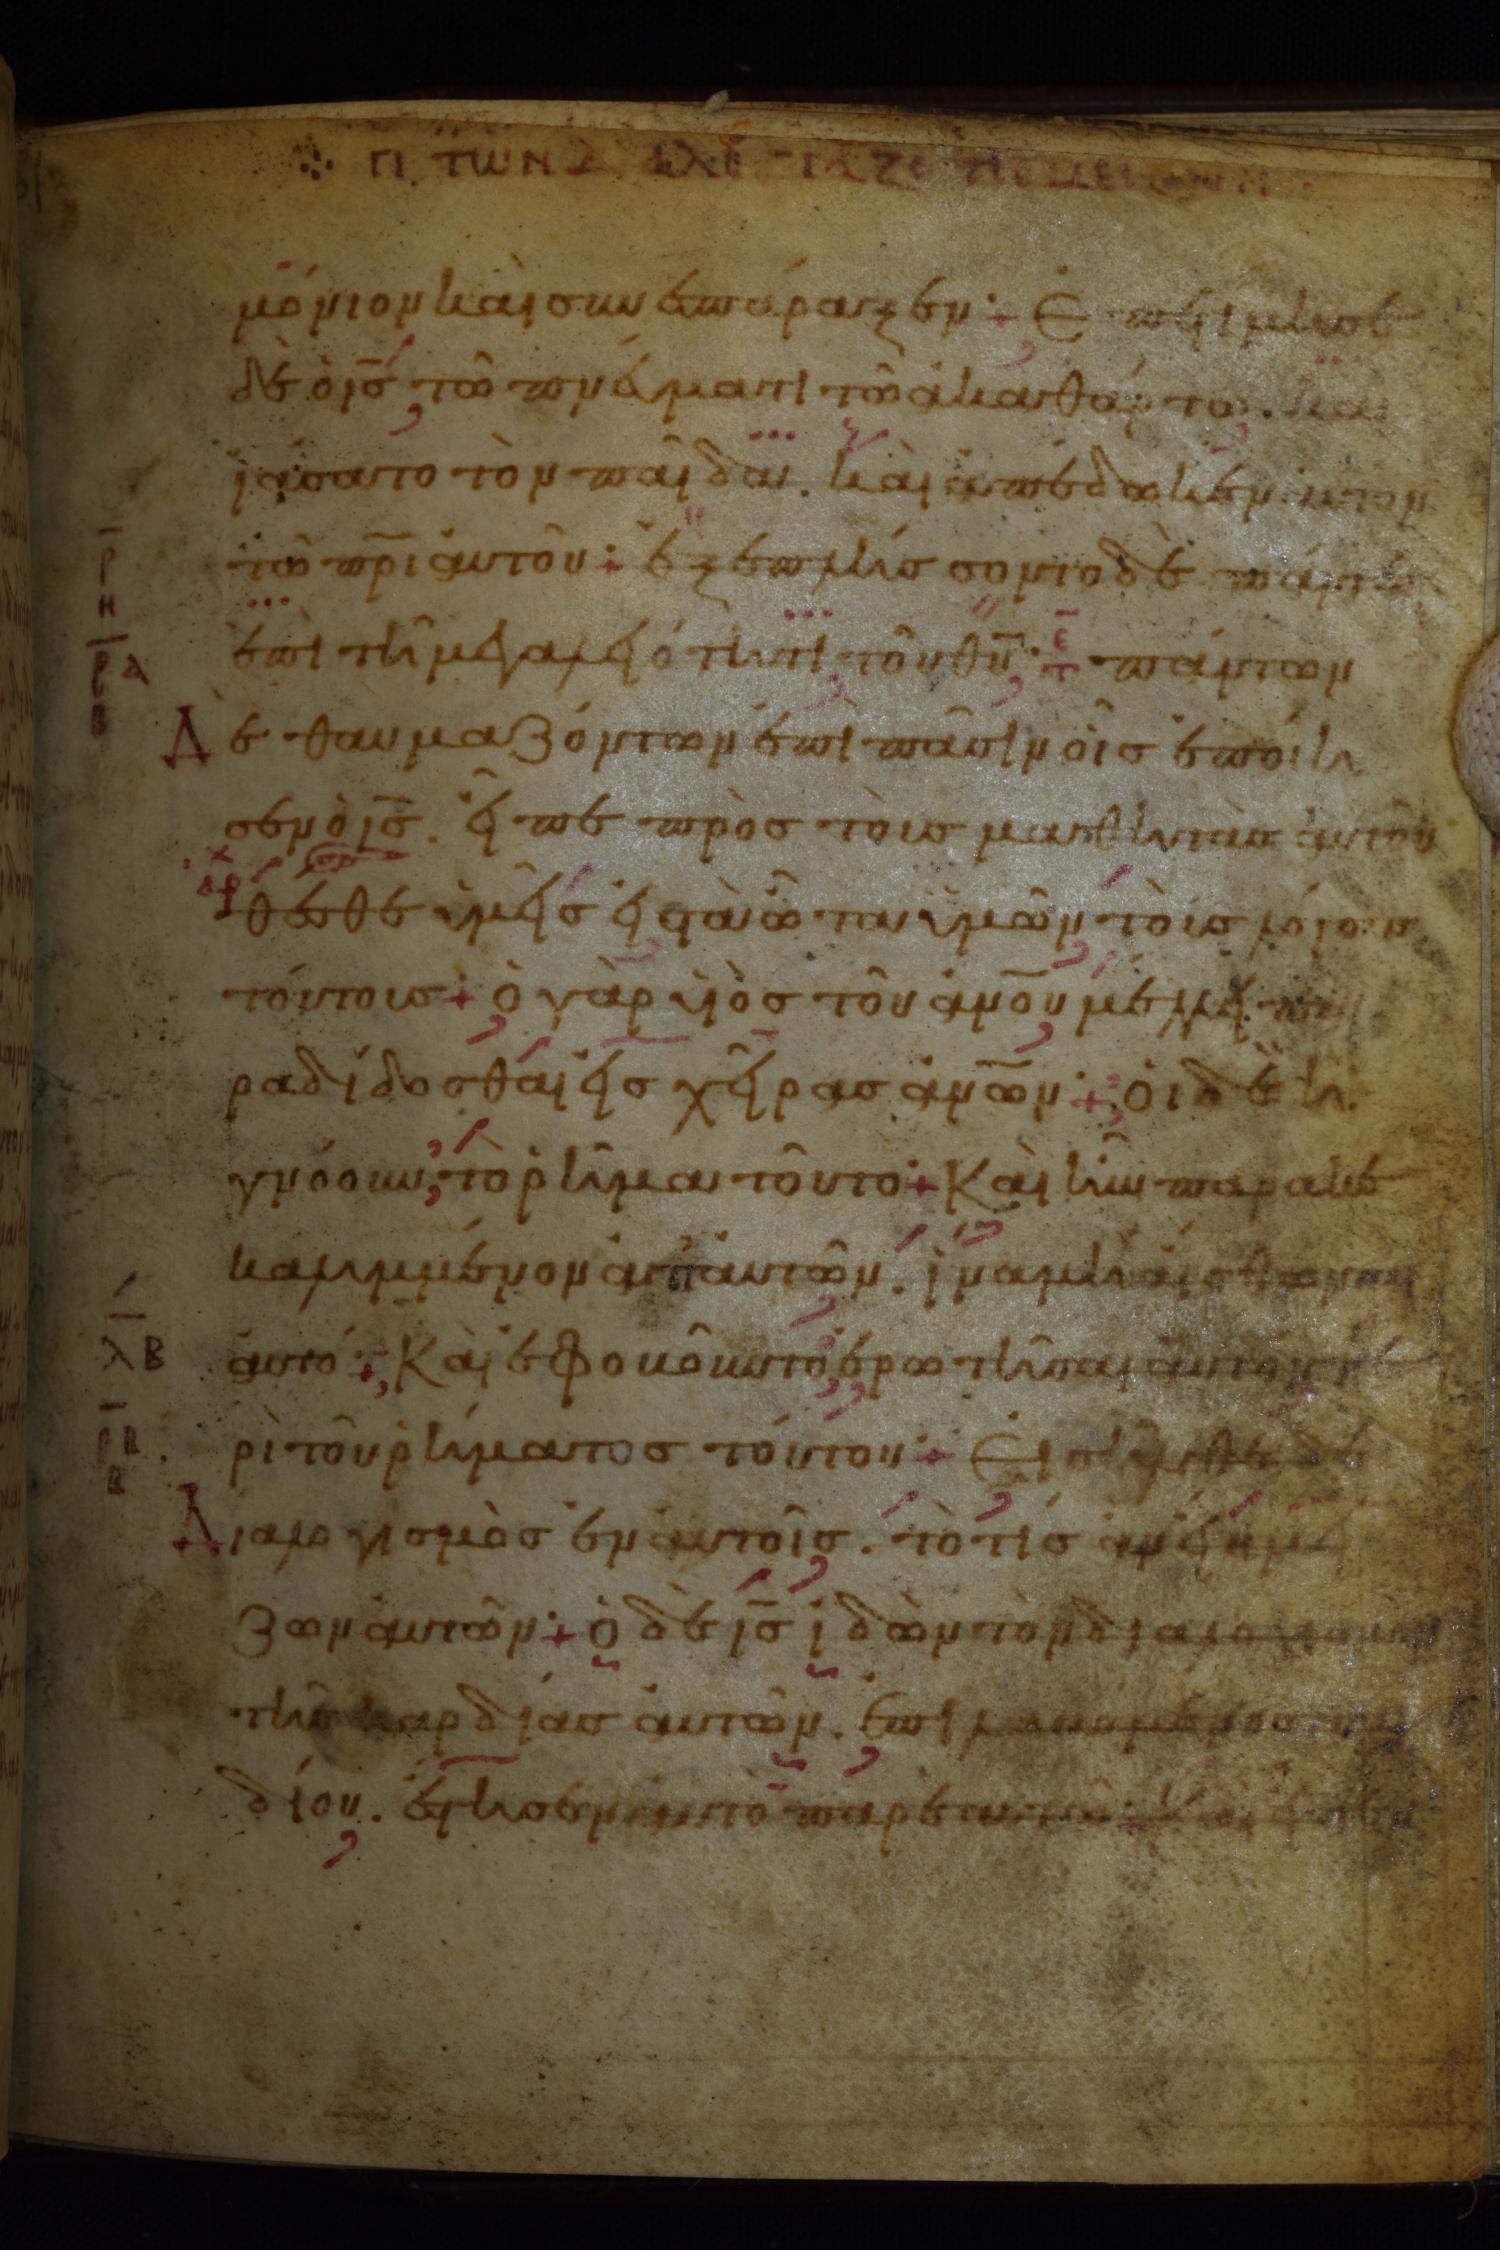 μόνιον καὶ συνεσπάραξεν· + Ἐπετίμησε
δὲ ὁ ισ̅ τῶ πνεύματι τῶ ἀκαθάρτω. καὶ
ἰάσατο τὸν παῖδα. καὶ ἀπέδωκεν αὐτὸν
τῶ πρ̅ι αὐτοῦ· + ἐξεπλήσσοντο δὲ πάντες
ρ̅
η
ἐπὶ τῆ μεγαλειότητι τοῦ θυ̅· + πάντων
ρ̅ Δ
β
Δὲ θαυμαζόντων ἐπὶ πᾶσιν οἷς ἐποίη
σεν ὁ ισ̅. εἶπε πρὸς τοὺς μαθητὰς αὐτοῦ
θέσθε ὑμεῖς εἰς τὰ ὦτα ὑμῶν τοὺς λόγους
τούτους + ὁ γὰρ υἱὸς τοῦ ἀνο̅υ μέλλει πα
ραδίδοσθαι εἰς χεῖρας ἀνω̅ν· + οἱ δὲ ἠ
γνόουν, τὸ ῥῆμα τοῦτο· + Καὶ ἦν παρακε
καλυμμένον ἀπ' αὐτῶν. ἵνα μὴ αἴσθωνται
λβ
αὐτό· + Καὶ ἐφοβοῦντο ἐρωτῆσαι αὐτὸν πε
ρὶ τοῦ ῥήματος τούτου· + Εἰσῆλθε δὲ
Διαλογισμὸς ἐν αὐτοῖς. τὸ τίς ἂν εἴη μεί
ζων αὐτῶν· + ὁ δὲ ισ̅ ἰδὼν τὸν διαλογισμὸν
τῆς καρδίας αὐτῶν. ἐπιλαβόμενος παι
δίου. ἔστησεν αὐτὸ παρ' ἑαυτῶ· + καὶ εἶπεν